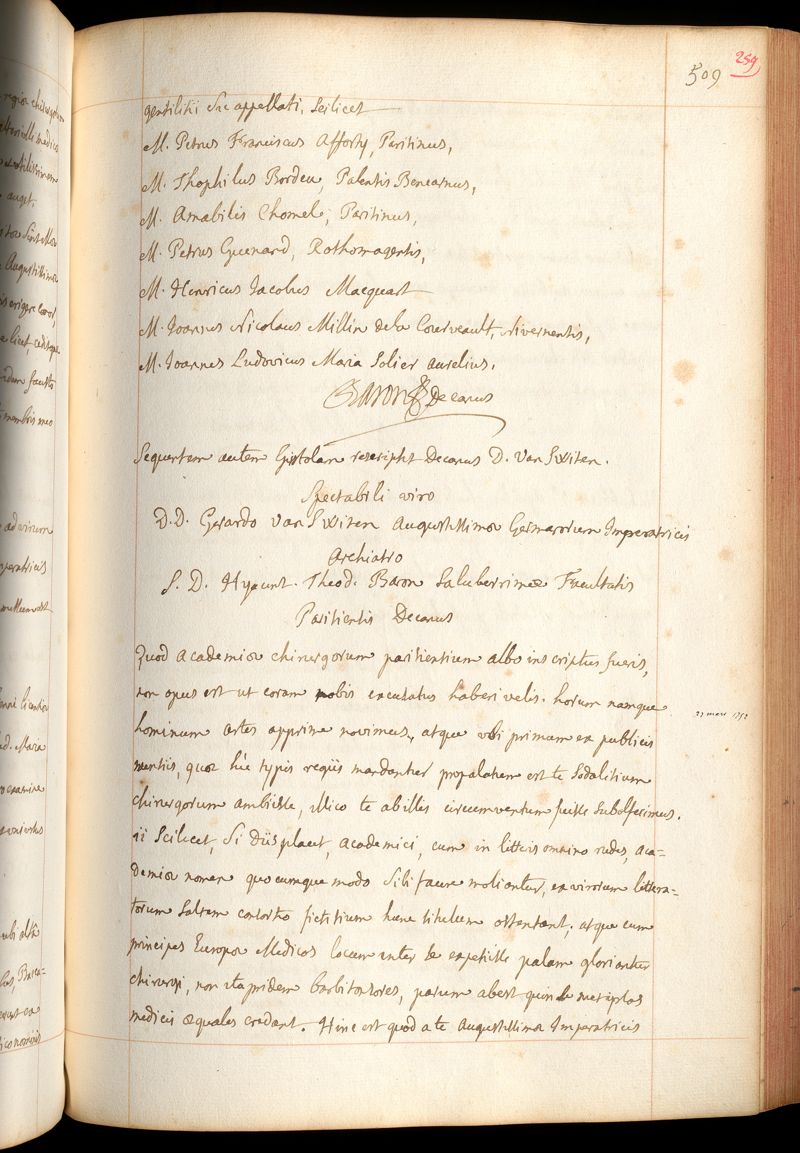 259
509
gentilitii sic appellati, Scilicet
M. Petrus Franciscus Afforty, Parisinus,
M. Thophilus Bordeu, Palensis Benearnus,
M. Amabilis Chomel, Parisinus,
M. Petrus Guenard, Rothomagensis,
M. Henricus Jacobus Macquart
M. Joannes Nicolaus Millin de la Courveault, Nivernensis,
M. Joannes Ludovicus Maria Solier aurelius.
Baron Decanus
Sequentem autem Epistolam rescripsit Decanus D. Van Switen.
Spectabili viro
D.D. Gerardo Van Switen Augustissimæ Germanorum Imperatricis
Archiatro
S. D. Hyacint. Theod. Baron Saluberrimæ Facultatis
Parisiensis Decanus
Quod academiæ chirurgorum parisiensium albo inscriptus fueris,
non opus est ut coram nobis excusatus haberi velis. horum namque
hominum artes apprime novimus, atque ubi primum ex publicis
nuntiis, quos hîc typis regiis mandantur propalatum est te Sodalitium
chirurgorum ambiisse, illico te ab illis circumventum fuisse Subolfecimus.
ii Scilicet, Si diis placet, academici, cum in litteris omnino rudes, aca=
demiæ nomen quocumque modo Sibi facere moliantur, ex virorum littera=
torum Saltem consortio fictitium hunc titulum ostentant; atque cum
principes Europæ Medicos locum inter se expetiisse palam gloriantur
chirurgi, non ita pridem barbitonsores, parum abest quin se metipsos
medicis æquales credant. Hinc est quod a te Augustissimæ Imperatricis